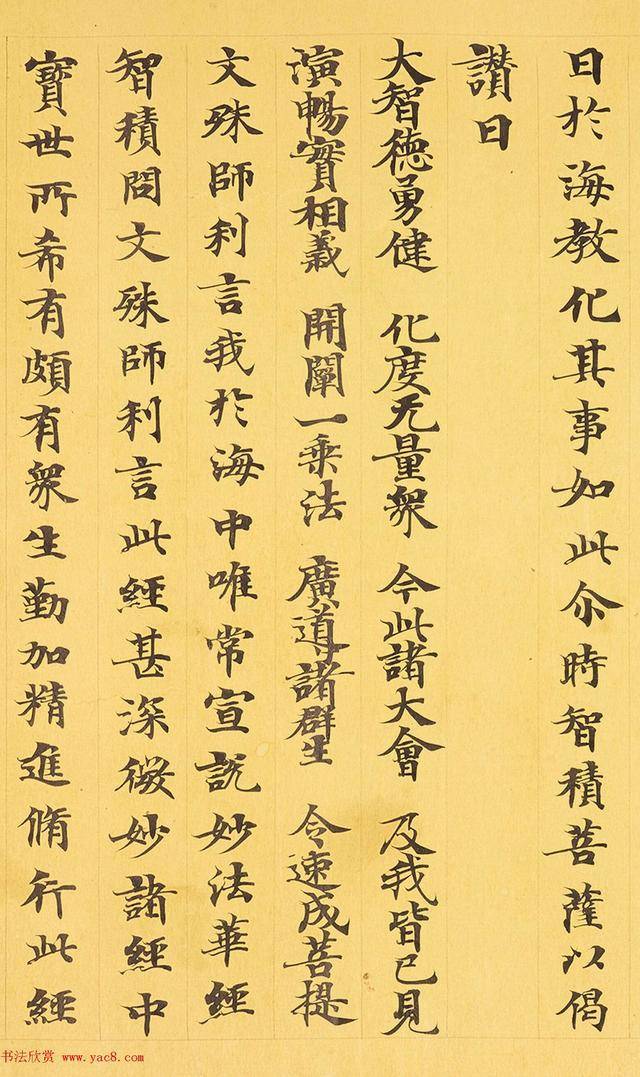 曰於海教化其事如此尒時智積菩薩以偈
讃曰
大智德勇健 化度无量衆 今此諸大會 及我皆已見
演暢實相義 開闡一乘法 廣導諸群生 令速成菩提
文殊師利言我於海中唯常宣說妙法華經
智積問文殊師利言此經甚深微妙諸經中
寶世所希有頗有衆生勤加精進脩行此經
书法欣赏 www.yac8.com